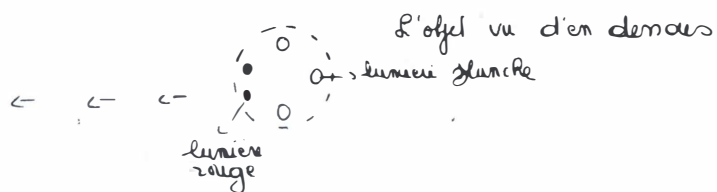 L'objet vu d'en dessous
lumière blanche
lumière
rouge